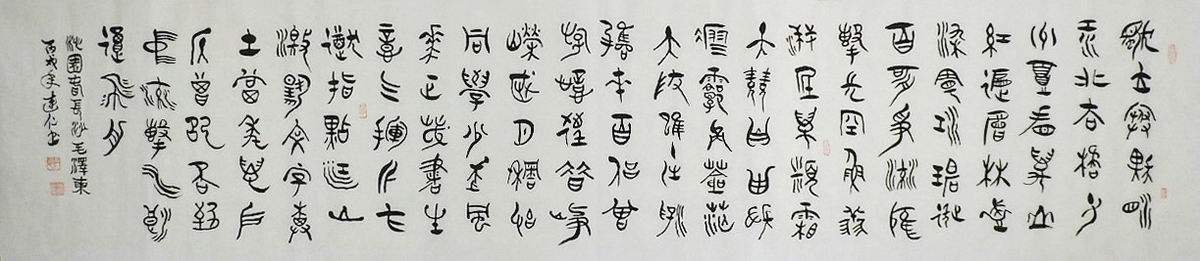 獨立寒秋湘
江北去橘子
洲頭看萬山
紅遍層林盡
染漫江碧透
百舸爭流鷹
擊長空魚翔
淺底萬類霜
天競自由悵
寥廓問蒼茫
大地誰主沉浮
攜來百侶曾
游憶往昔崢
嶸歲月稠恰
同學少年風
華正茂書生
意气揮斥方
遒指點江山
激揚文字糞
土當年萬戶
侯曾記否到
中流擊水浪
遏飛舟
沁園春長沙毛澤東
丙戌